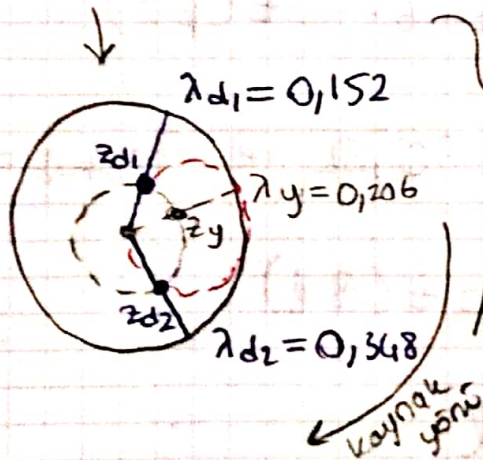 λd₁ = 0,152
zd₁
λy = 0,206
zy
zd₂
λd₂ = 0,348
kaynak
yönü